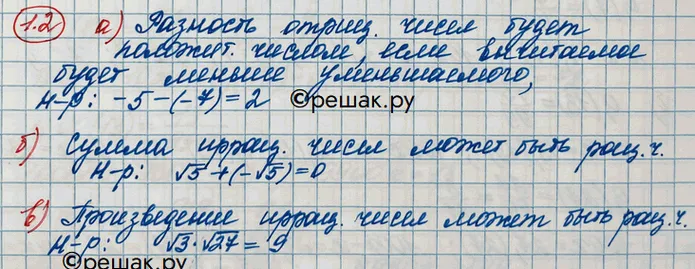 1.2 а) Разность отриц. чисел будет
положит. числом, если вычитаемое
будет меньше уменьшаемого,
н-р: -5-(-7)=2 ©решак.ру
б) Сумма иррац. чисел может быть рац.ч.
Н-р: √5+(-√5)=0
в) Произведение иррац. чисел может быть рац.ч.
Н-р: √3·√27=9
©решак.ру